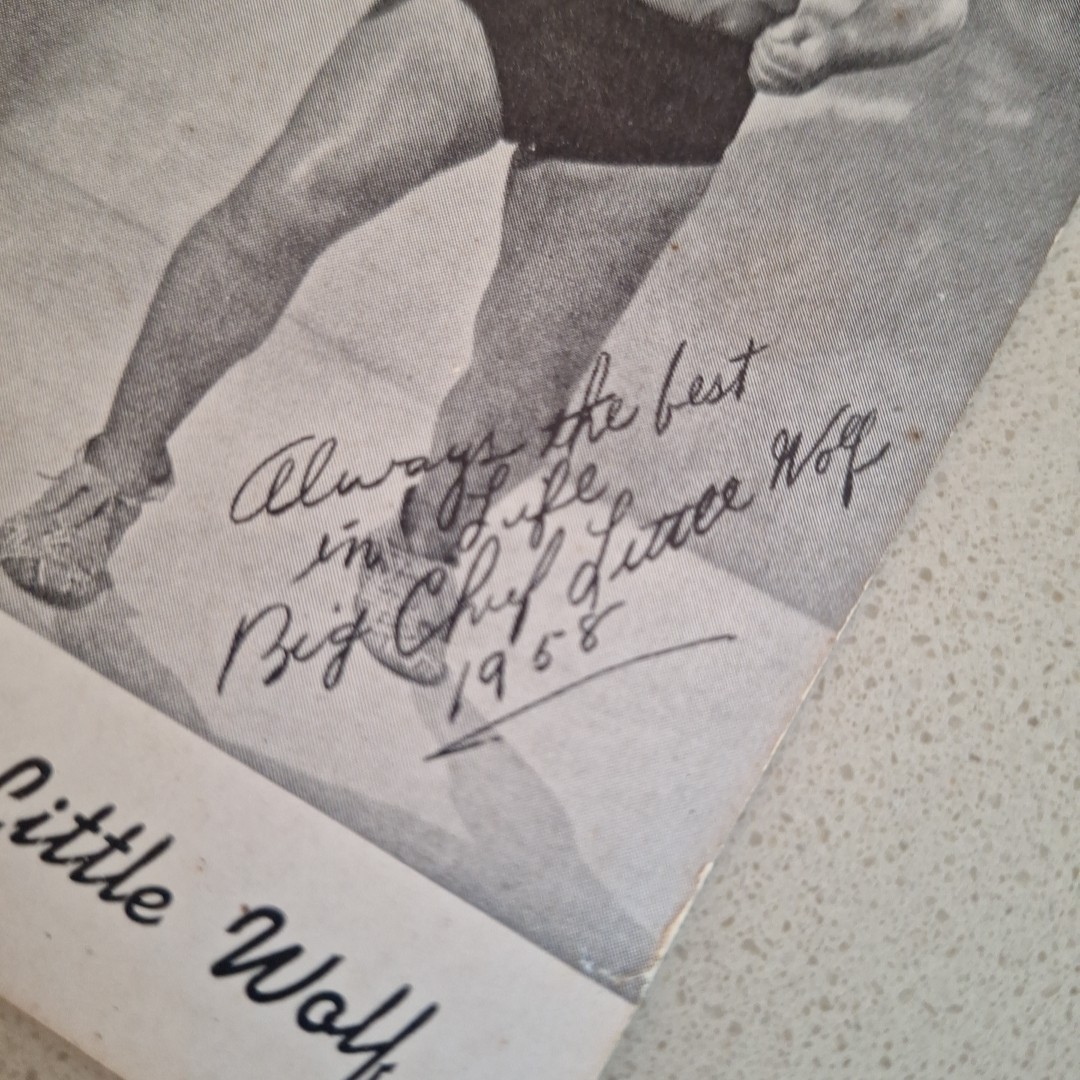 Always the best
in Life
Big Chief Little Wolf
1958
Little Wolf